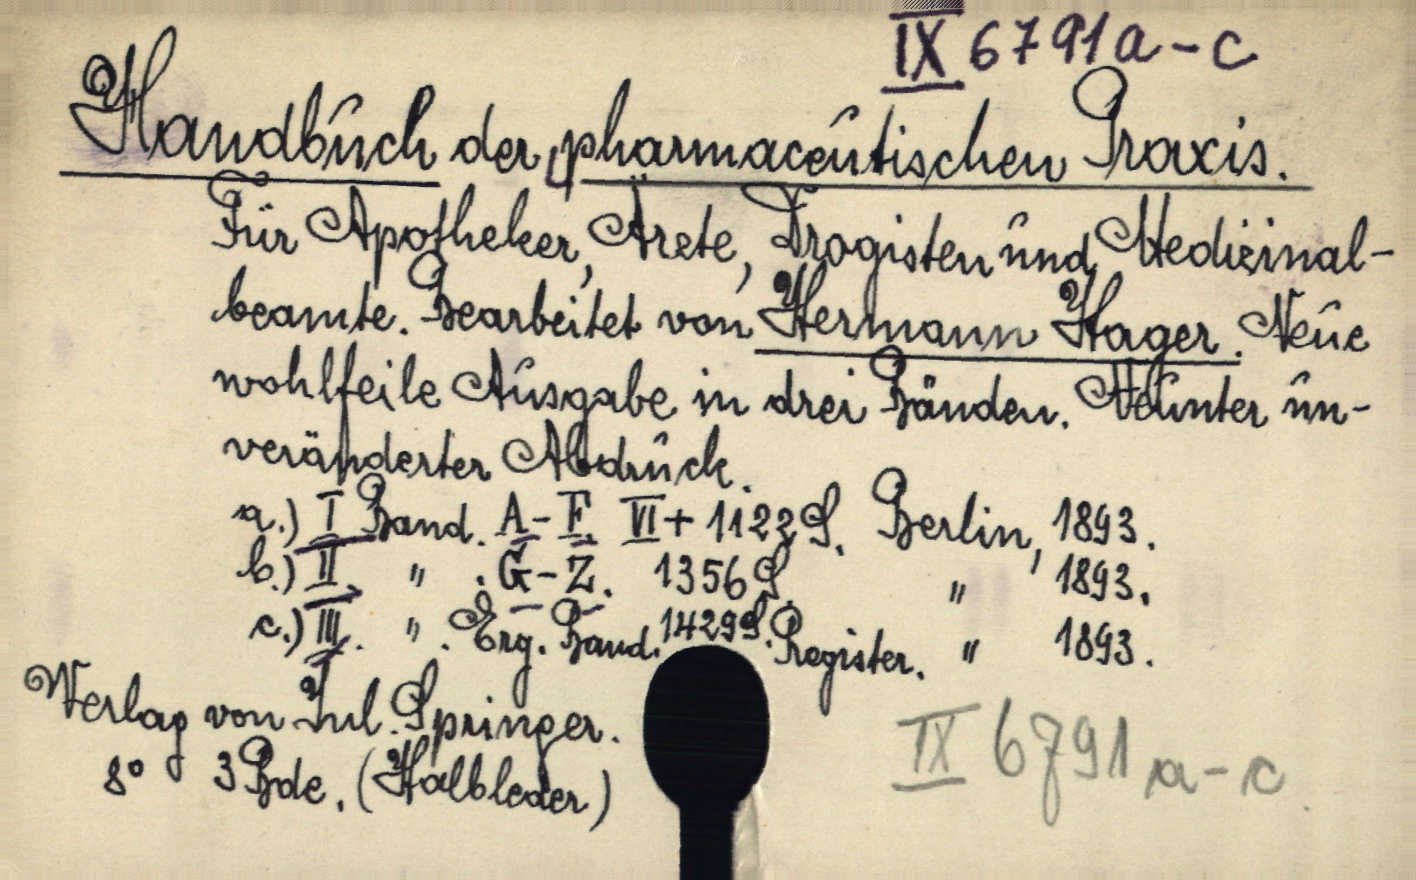 IX 6791a-c
Handbuch der pharmaceutischen Praxis.
Für Apotheker, Ärzte, Drogisten und Medizinal-
beamte. Bearbeitet von Hermann Hager. Neue
wohlfeile Ausgabe in drei Bänden. Achter un-
veränderter Abdruck.
a.) I Band. A-F. VI + 1122 S. Berlin, 1893.
b.) II. " . G-Z. 1356 S. " 1893.
c.) III. " . Erg. Band. 1429 S. Register. " 1893.
Verlag von Jul. Springer.
8° 3 Bde. (Halbleder)
IX 6791 a-c